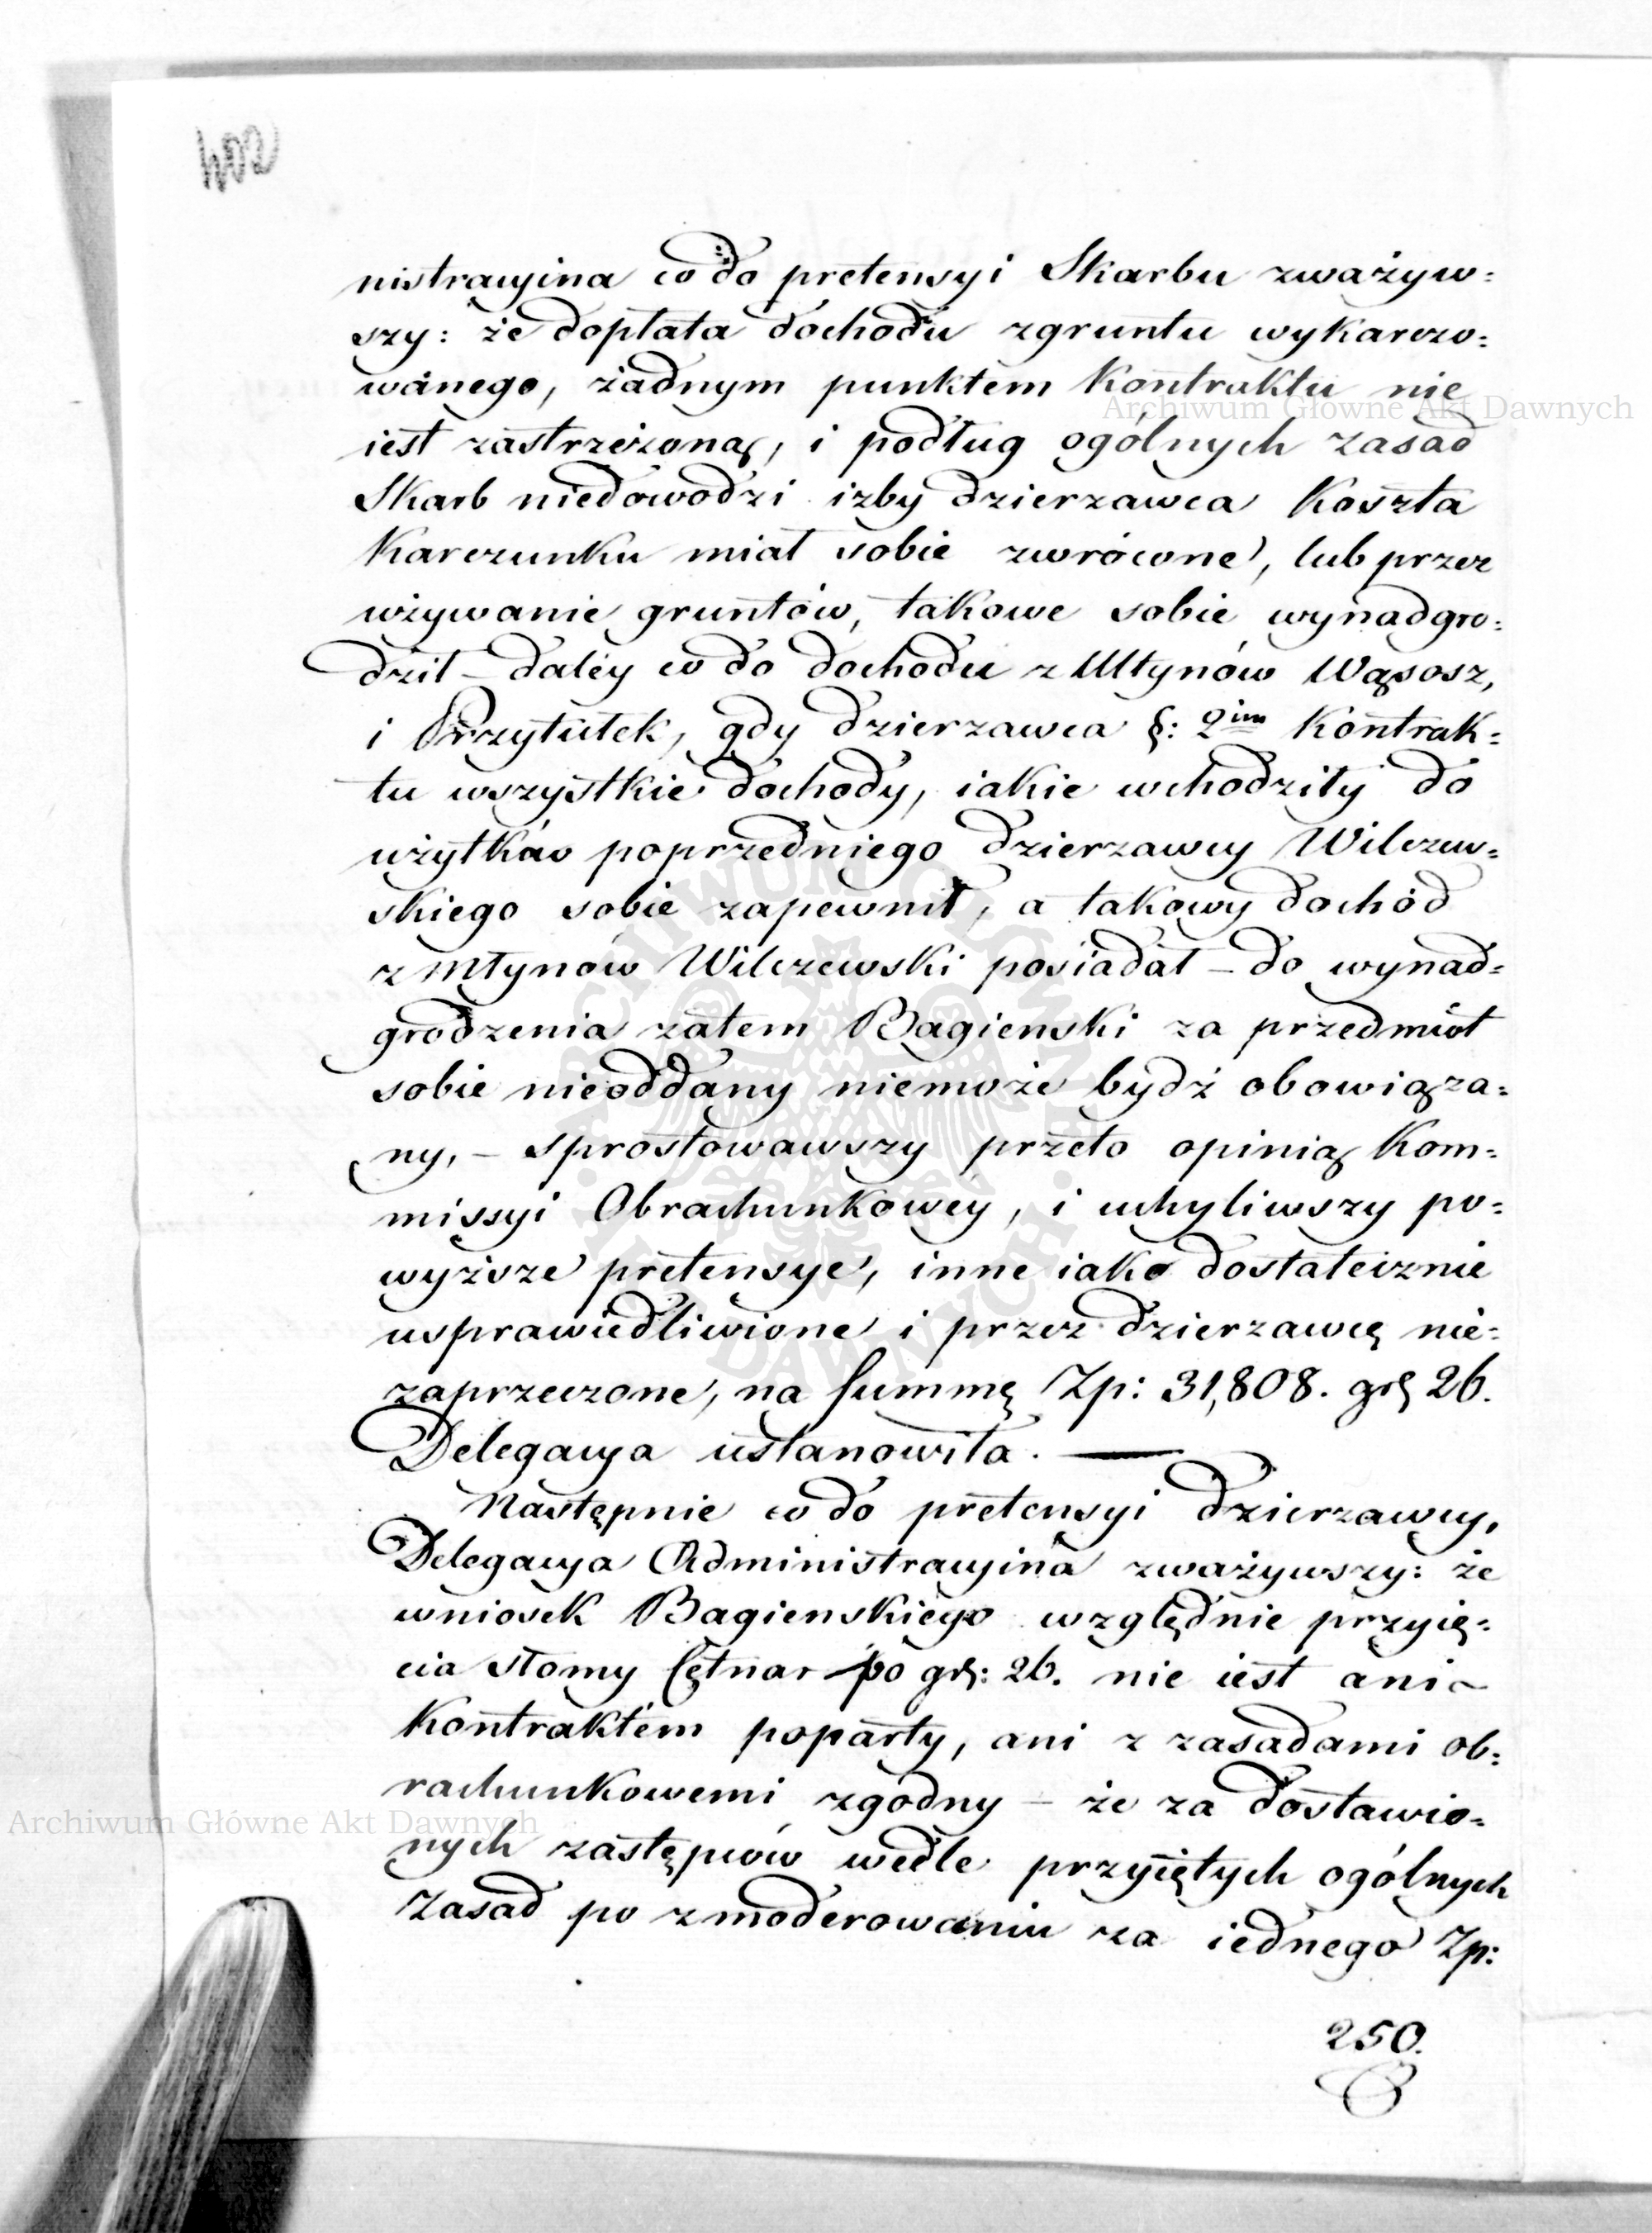 nistracyina co do pretensyi Skarbu zważyw:
szy: że dopłata dochodu zgruntu wykarczo:
wanego, żadnym punktem Kontraktu nie
iest zastrzeżoną, i podług ogólnych zasad
Skarb niedowodzi izby dzierzawca Koszta
Karczunku miał sobie zwrócone, lub przez
używanie gruntów, takowe sobie wynadgro:
dził – daléy co do dochodu z Młynów Wąsosz,
i Przytułek, gdy dzierzawca §: 2im Kontrak:
tu wszystkie dochody, iakie wchodziły do
użytków poprzedniego dzierzawcy Wilczew:
skiego sobie zapewnił, a takowy dochód
z Młynów Wilczewski posiadał – do wynad:
grodzenia zatem Bagienski za przedmiot
sobie nieoddany niemoże bydź obowiąza:
ny, – sprostowawszy przeto opinią Kom:
missyi Obrachunkowéy, i uchyliwszy po:
wyższe pretensye, inne iako dostatecznie
usprawiedliwione i przez dzierzawcę nie:
zaprzeczone, na summę Zp: 31,808. gr 26.
Delegacya ustanowiła. —
Następnie co do pretensyi dzierzawcy,
Delegacya Administracyina zważywszy: że
wniosek Bagienskiego względnie przyię:
cia słomy Cętnar po gr: 26. nie iest ani
Kontraktem poparty, ani z zasadami ob:
rachunkowemi zgodny – że za dostawio:
nych zastępców wedle przyiętych ogólnych
Zasad po zmoderowaniu za iednego Zp:
250.
402
Archiwum Główne Akt Dawnych
Archiwum Główne Akt Dawnych
ARCHIWUM GŁÓWNE AKT DAWNYCH